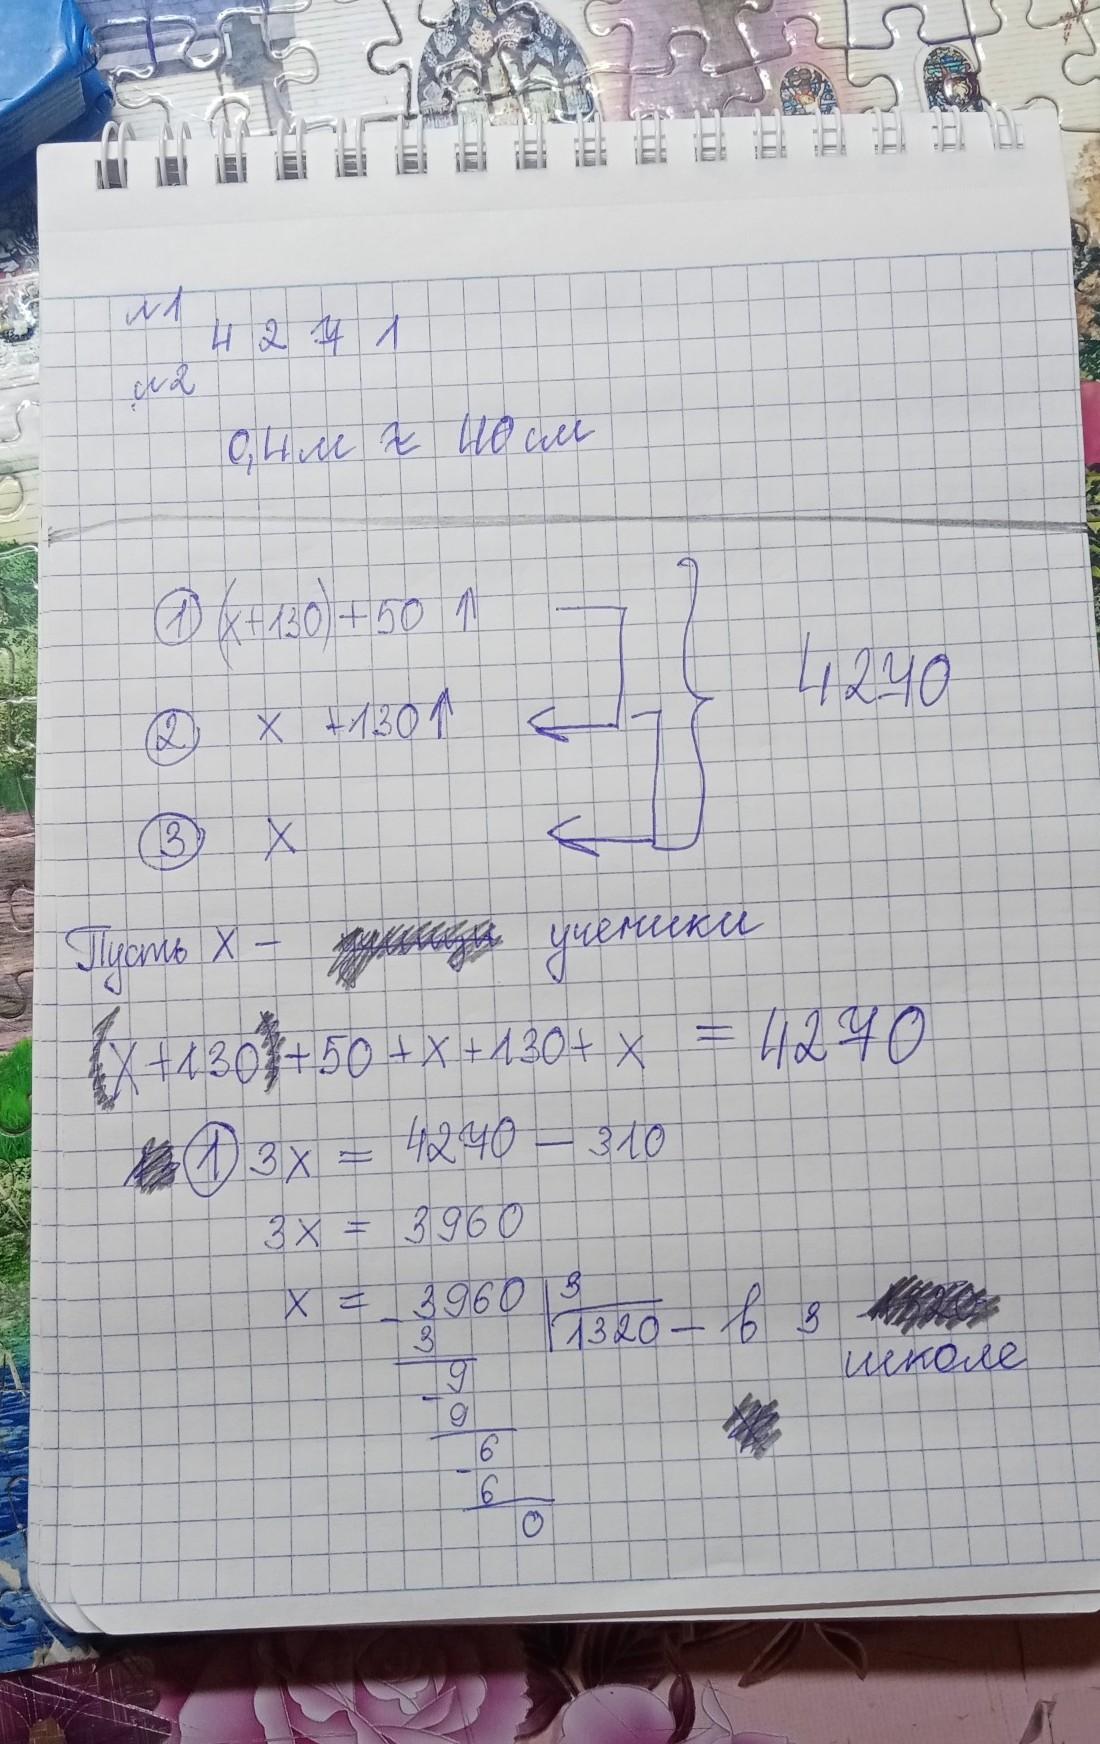 №1
4 2 7 1
№2
0,4м ≈ 40см
① (x+130)+50 ↑
② x +130↑
4270
③ x
Пусть x - ученики
(x+130)+50+x+130+x = 4270
① 3x = 4270 - 310
3x = 3960
x = 3960 | 3
3 1320 - в 3 школе
9
9
6
6
0